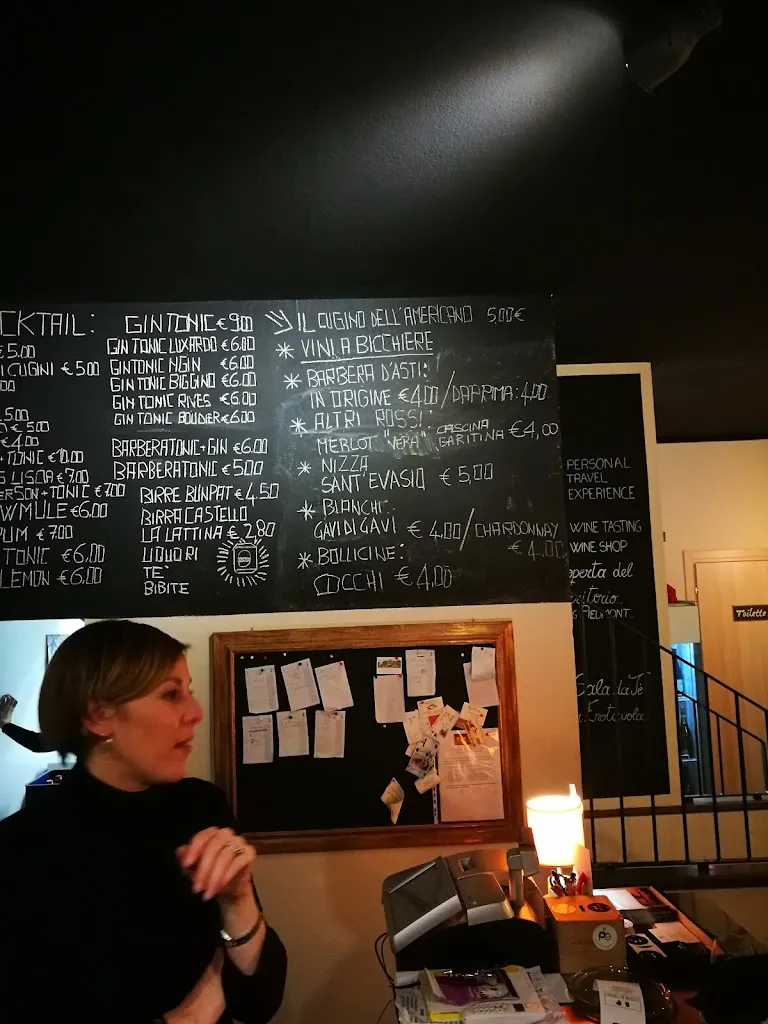 CKTAIL:
€ 5.00
I CUGINI € 5.00
00
5.00
€ 5.00
€ 4.00
+ TONIC € 10.00
LISOR € 7.00
ERSON + TONIC € 7.00
WMULE € 6.00
PUM € 7.00
TONIC € 6.00
LEMON € 6.00
GIN TONIC € 9.00
GIN TONIC LUXARDO € 6.00
GIN TONIC NGIN € 6.00
GIN TONIC BIGGINO € 6.00
GIN TONIC RIVES € 6.00
GIN TONIC BOUDIER € 6.00
BARBERATONIC + GIN € 6.00
BARBERATONIC € 5.00
BIRRE BUNPAT € 4.50
BIRRA CASTELLO
LA LATTINA € 2,80
LIQUORI
TE'
BIBITE
IL CUGINO DELL'AMERICANO 5,00€
* VINI A BICCHIERE
* BARBERA D'ASTI:
IN ORIGINE € 4,00 / DAPPRIMA: 4,00
* ALTRI ROSSI:
MERLOT "VERA" CASCINA GARITINA € 4,00
* NIZZA
SANT'EVASIO € 5,00
* BIANCHI:
GAVI DI GAVI € 4.00 / CHARDONNAY
€ 4.00
* BOLLICINE:
COCCHI € 4,00
PERSONAL
TRAVEL
EXPERIENCE
WINE TASTING
WINE SHOP
perta del
ritorio
PIEMONT
Sala da Tè
Enotavola
Toilette